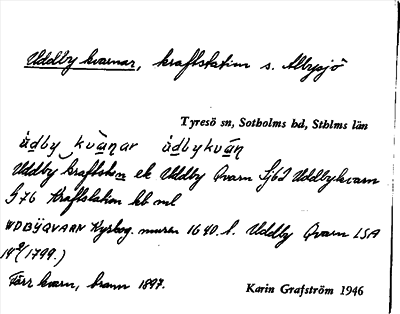 Uddby kvarnar, kraftstation s. Albysjö
Tyresö sn, Sotholms hd, Sthlms län
Uddby kraftstn ek Uddby Qvarn Sj62 Uddbykvarn
G 76 Kraftstation bb ml
UDBÿQVARN Kyrkog. muren 1640. t. Uddby Qvarn LSA
(1799.)
Förr kvarn, brann 1897.
Karin Grafström 1946